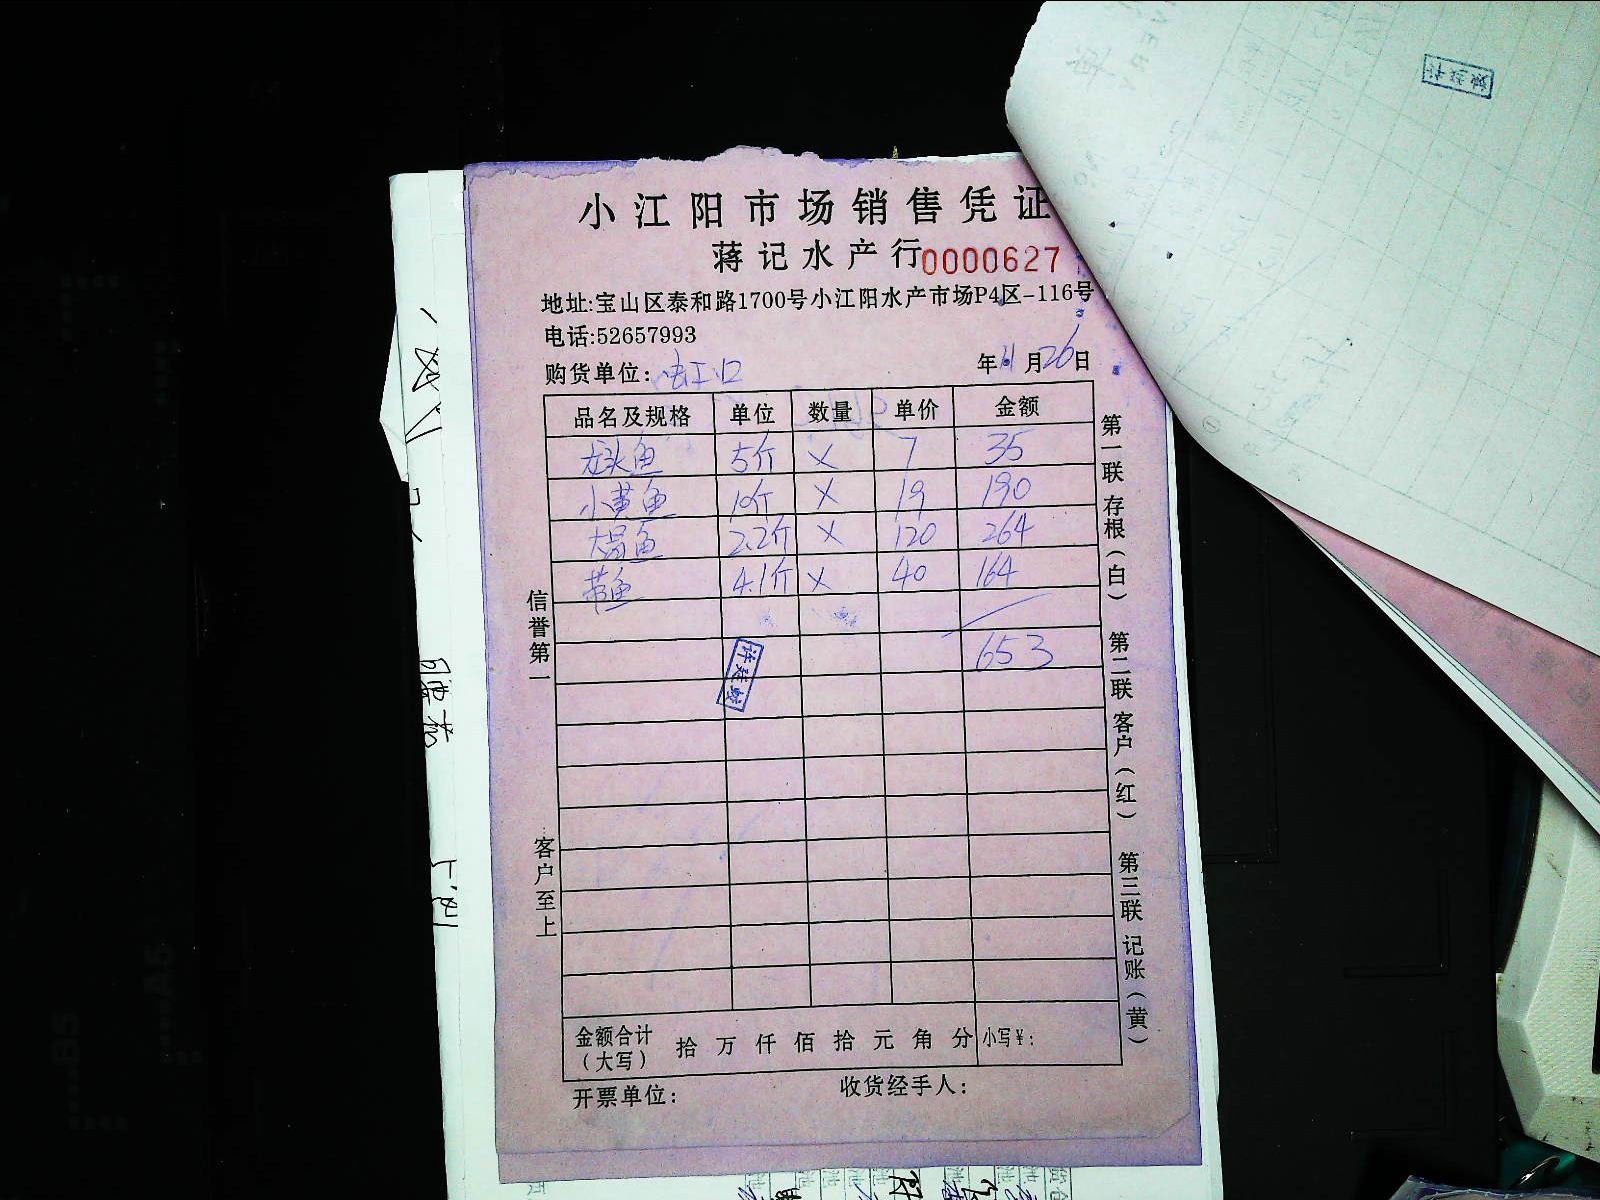 小江阳市场销售凭证
蒋记水产行 0000627
地址:宝山区泰和路1700号小江阳水产市场P4区-116号
电话:52657993
购货单位: 虹口 年11月26日
品名及规格 单位 数量 单价 金额
龙头鱼 5斤 × 7 35
小黄鱼 10斤 × 19 190
大昌鱼 2.2斤 × 120 264
带鱼 4.1斤 × 40 164
653
金额合计(大写) 拾 万 仟 佰 拾 元 角 分 小写¥:
开票单位: 收货经手人:
信誉第一
客户至上
第一联 存根(白)
第二联 客户(红)
第三联 记账(黄)